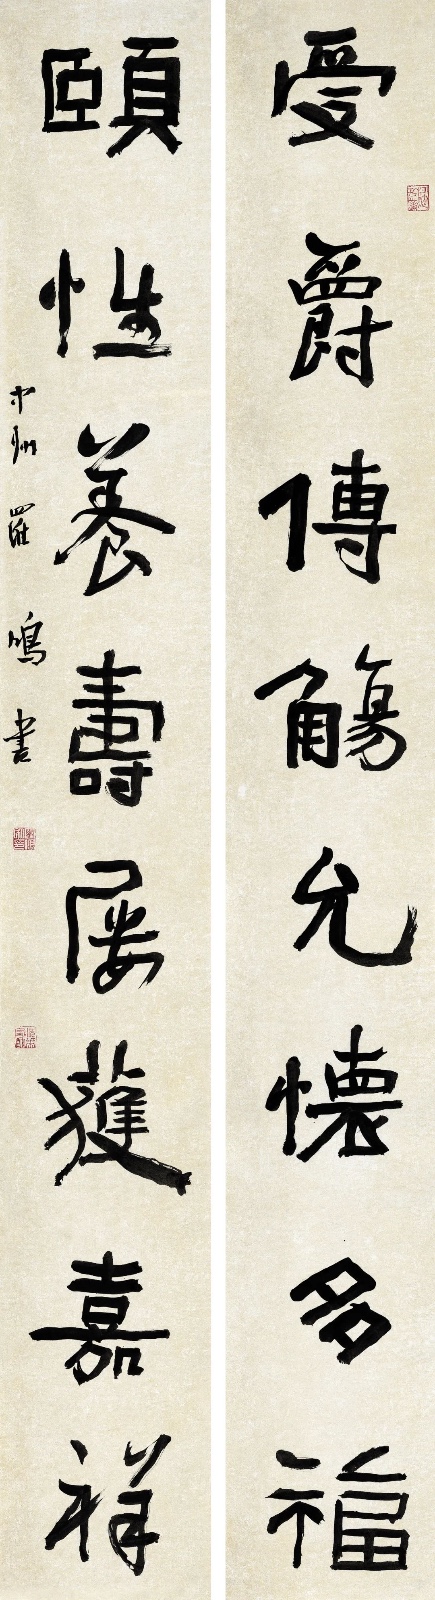 受爵傳觴允懷多福
頤性養壽屢獲嘉祥
中州羅鳴書